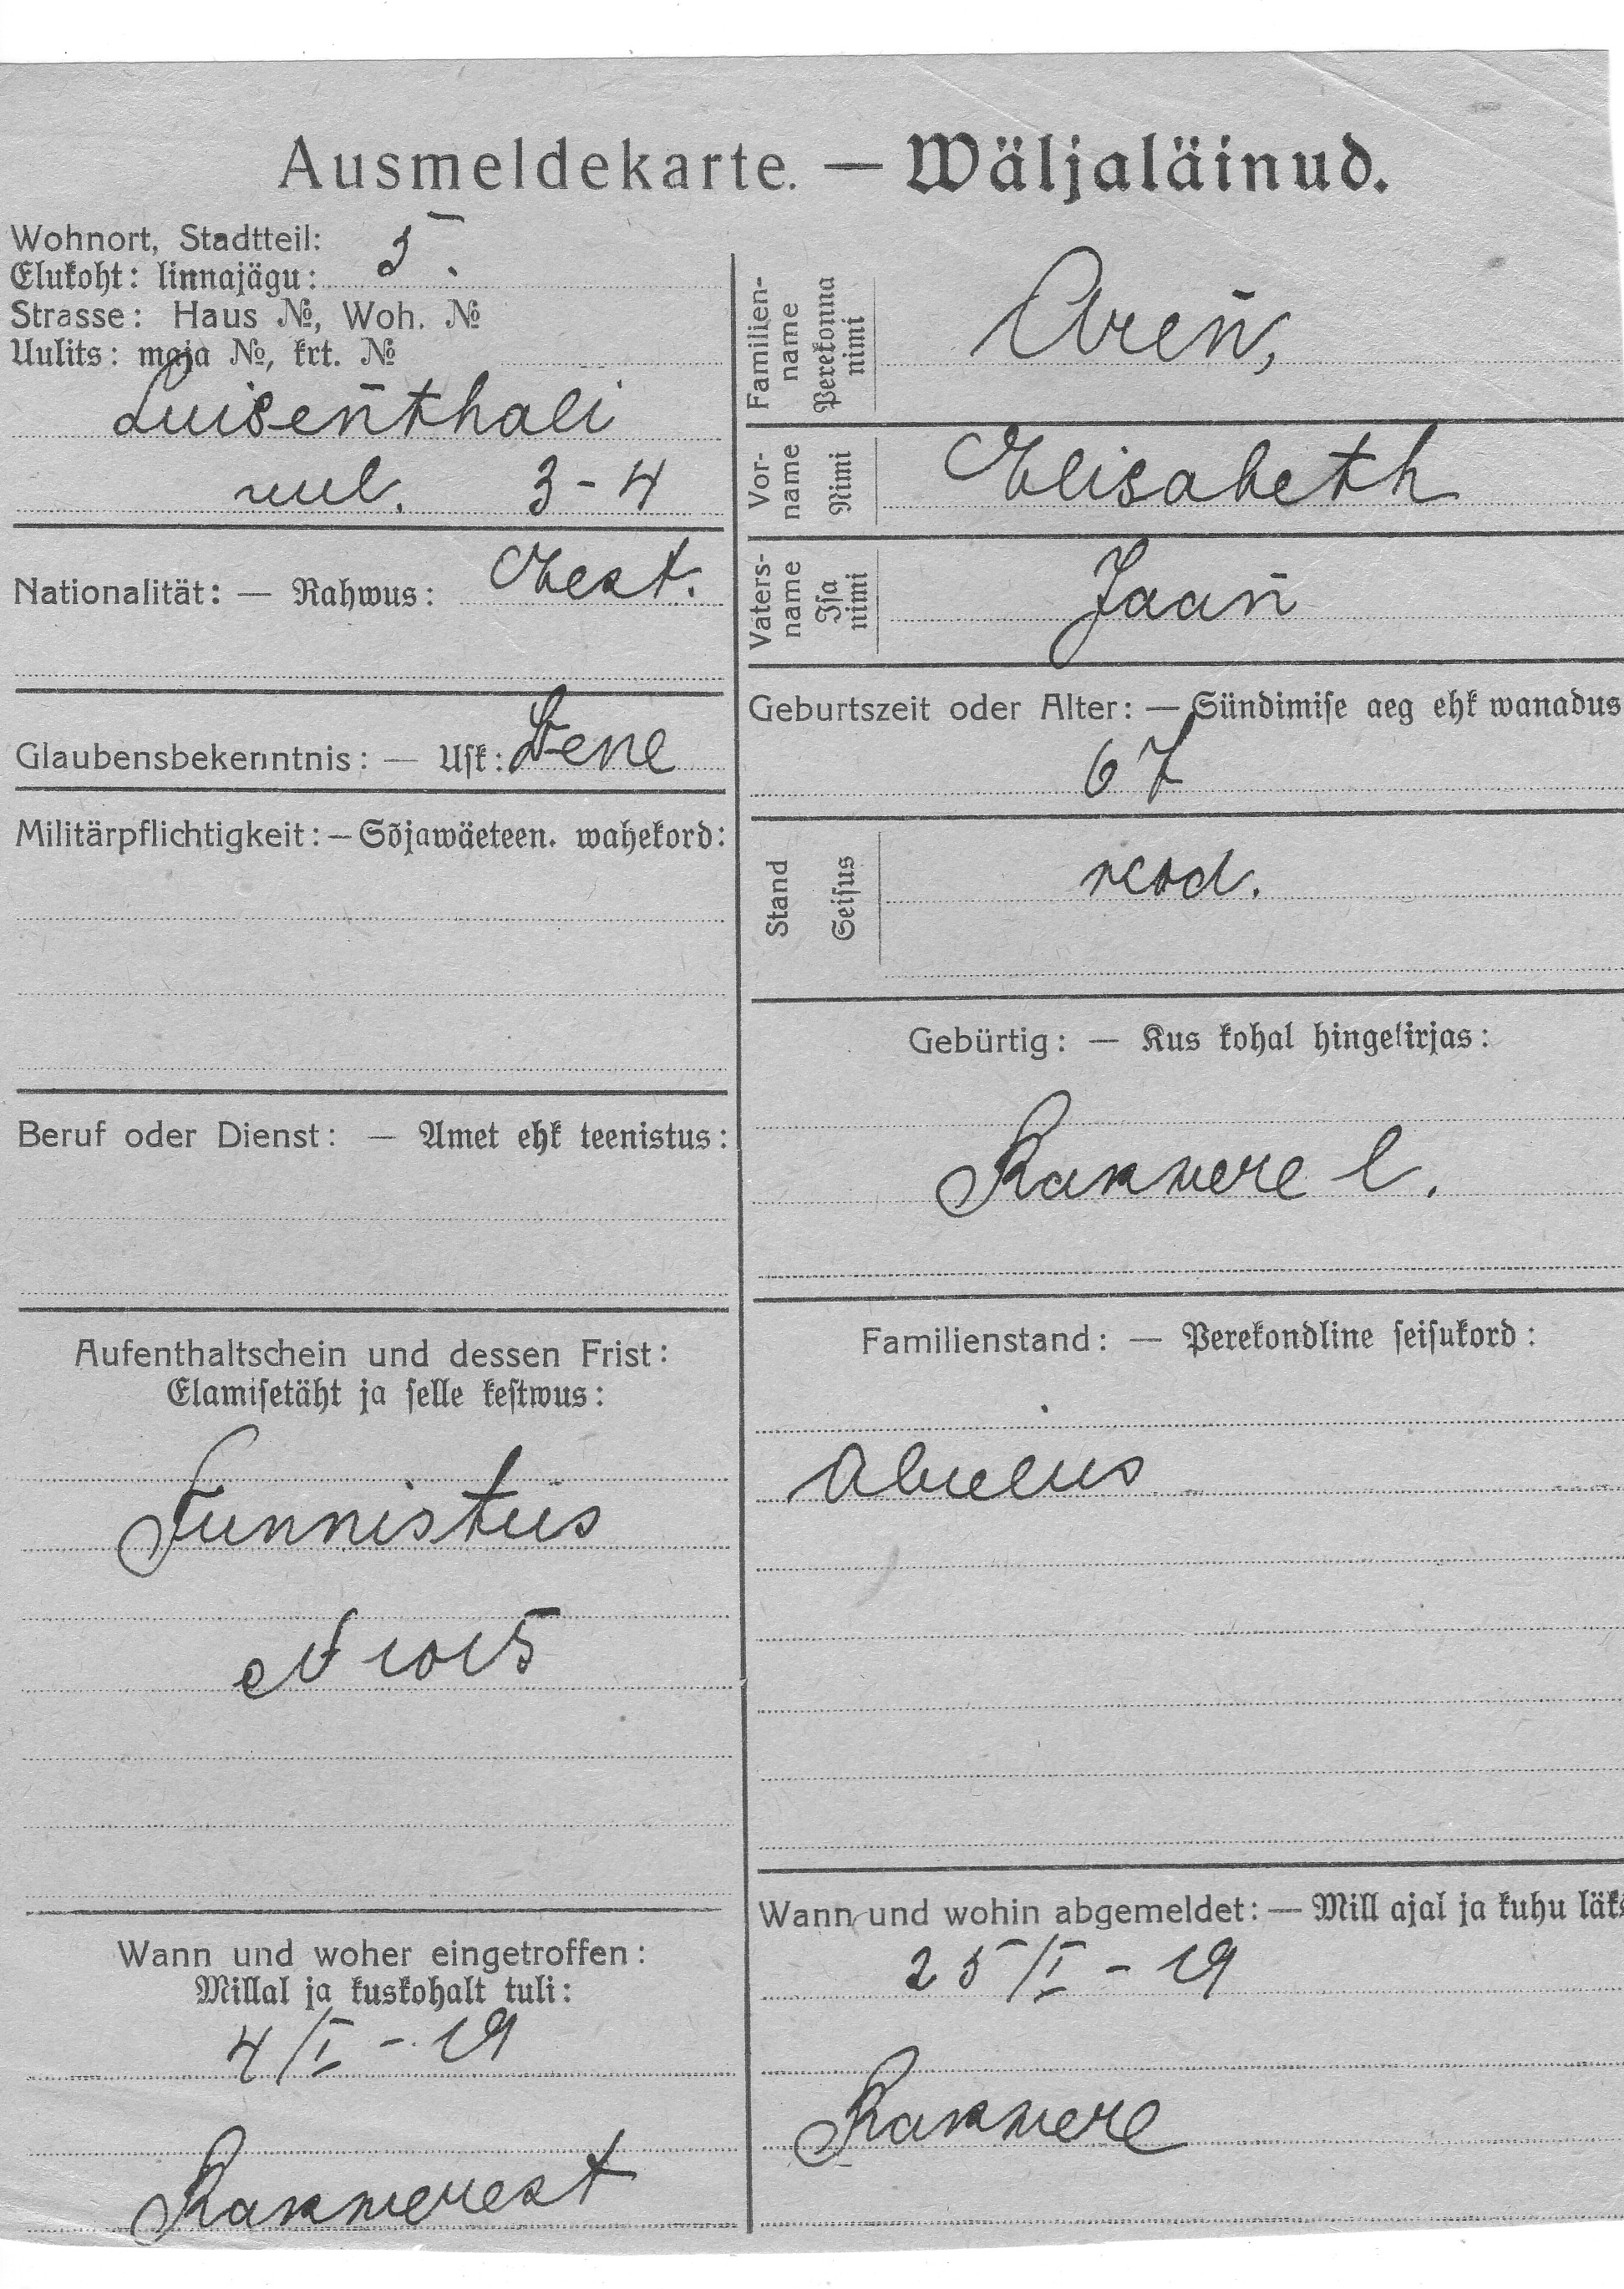 Ausmeldekarte. — Wäljaläinud.
Wohnort, Stadtteil:
Elukoht: linnajägu: 5.
Strasse: Haus №, Woh. №
Uulits: maja №, krt. №
Luisenthali
uul. 3-4
Nationalität: — Rahwus: Eest.
Glaubensbekenntnis: — Usk: Wene
Militärpflichtigkeit: — Sõjawäeteen. wahekord:
Beruf oder Dienst: — Amet ehk teenistus:
Aufenthaltschein und dessen Frist:
Elamisetäht ja selle kestwus:
Tunnistus
№ 1015
Wann und woher eingetroffen:
Millal ja kuskohalt tuli:
4/I - 19
Rakwerest
Familien-
name
Perekonna
nimi
Aren,
Vor-
name
Nimi
Elisabeth
Vaters-
name
Isa
nimi
Jaan
Geburtszeit oder Alter: — Sündimise aeg ehk wanadus
67
Stand
Seisus
Gebürtig: — Kus kohal hingekirjas:
Rakwere l.
Familienstand: — Perekondline seisukord:
abielus
Wann und wohin abgemeldet: — Mill ajal ja kuhu läks
25/I - 19
Rakwere